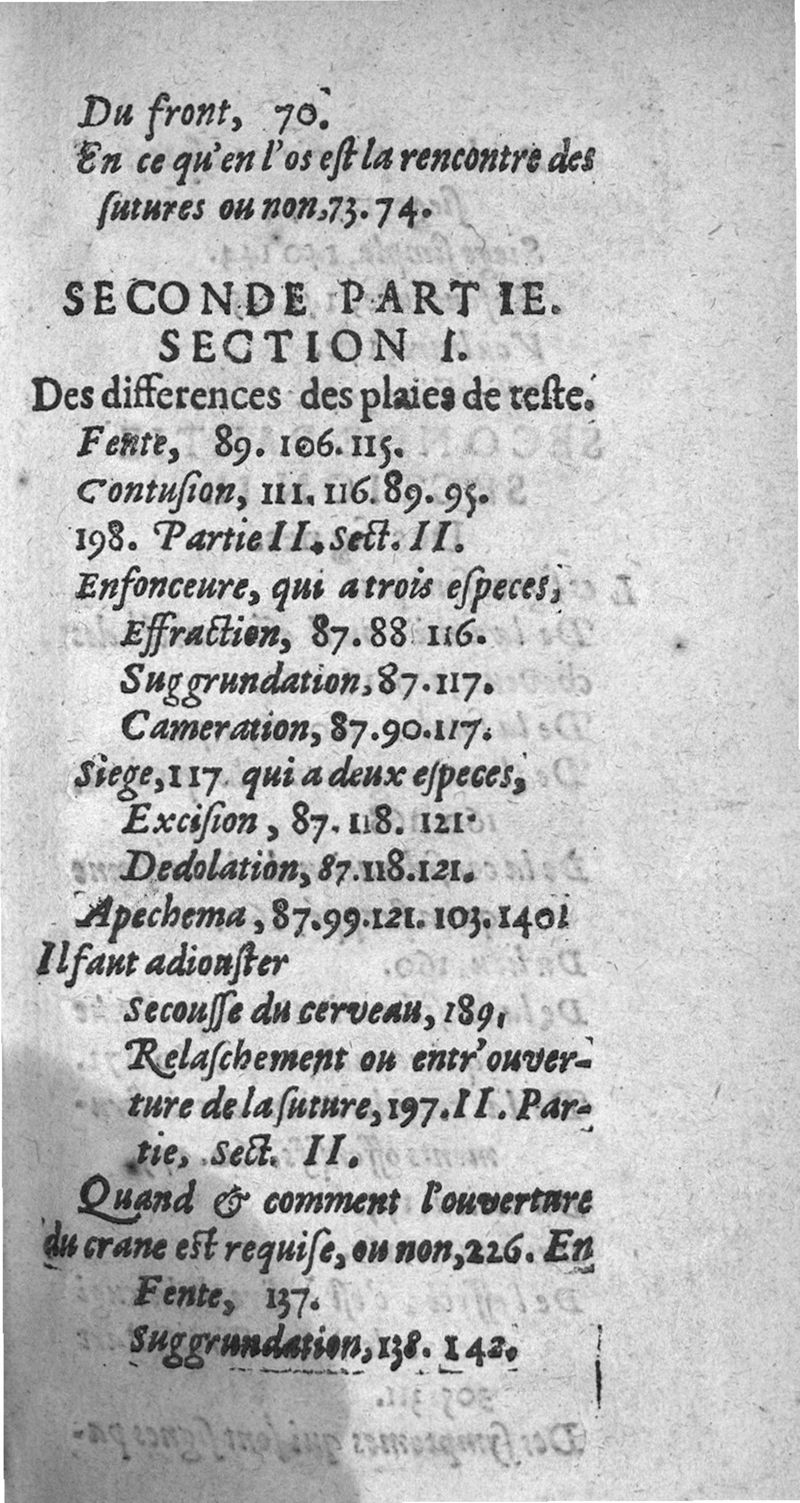 Du front, 70.
En ce qu'en l'os est la rencontre des
ſutures ou non, 73. 74.
SECONDE PARTIE.
SECTION I.
Des differences des plaies de teſte.
Fente, 89. 106. 115.
Contuſion, 111. 116. 89. 95.
198. Partie II. Sect. II.
Enfonceure, qui a trois eſpeces,
Effraction, 87. 88 116.
Suggrundation, 87. 117.
Cameration, 87. 90. 117.
Siege, 117 qui a deux eſpeces,
Exciſion, 87. 118. 121.
Dedolation, 87. 118. 121.
Apechema, 87. 99. 121. 103. 140.
Il faut adiouſter
Secouſſe du cerveau, 189,
Relaſchement ou entr'ouver-
ture de la ſuture, 197. II. Par-
tie, Sect. II.
Quand & comment l'ouverture
du crane est requiſe, ou non, 226. En
Fente, 137.
Suggrundation, 138. 142.